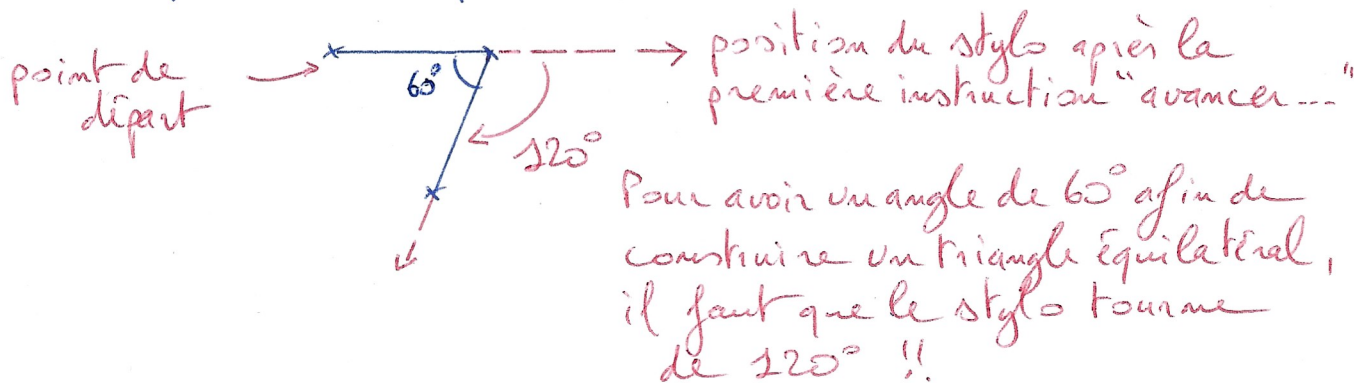 point de
départ
60°
120°
position du stylo après la
première instruction "avancer..."
Pour avoir un angle de 60° afin de
construire un triangle équilatéral,
il faut que le stylo tourne
de 120° !!